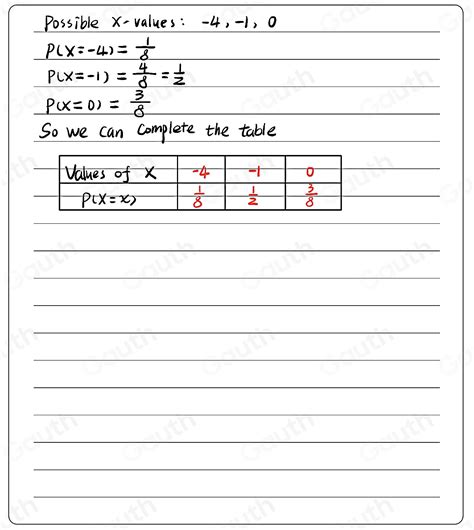 Possible X-values: -4, -1, 0
P(X=-4) = 1/8
P(X=-1) = 4/8 = 1/2
P(X=0) = 3/8
So we can complete the table
Values of X -4 -1 0
P(X=x) 1/8 1/2 3/8
Gauth